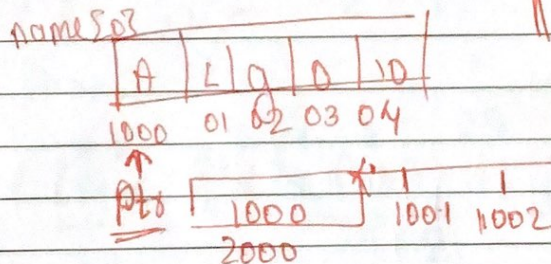 name[0]
A L g 0 10
1000 01 02 03 04
Ptr 1000 1001 1002
2000